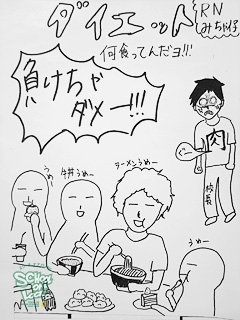 ダイエット
RN
みちゃ好
何食ってんだヨ!!!
負けちゃ
ダメー!!!
肉
校長
うめー
牛丼うめー
ラーメンうめー
うめー